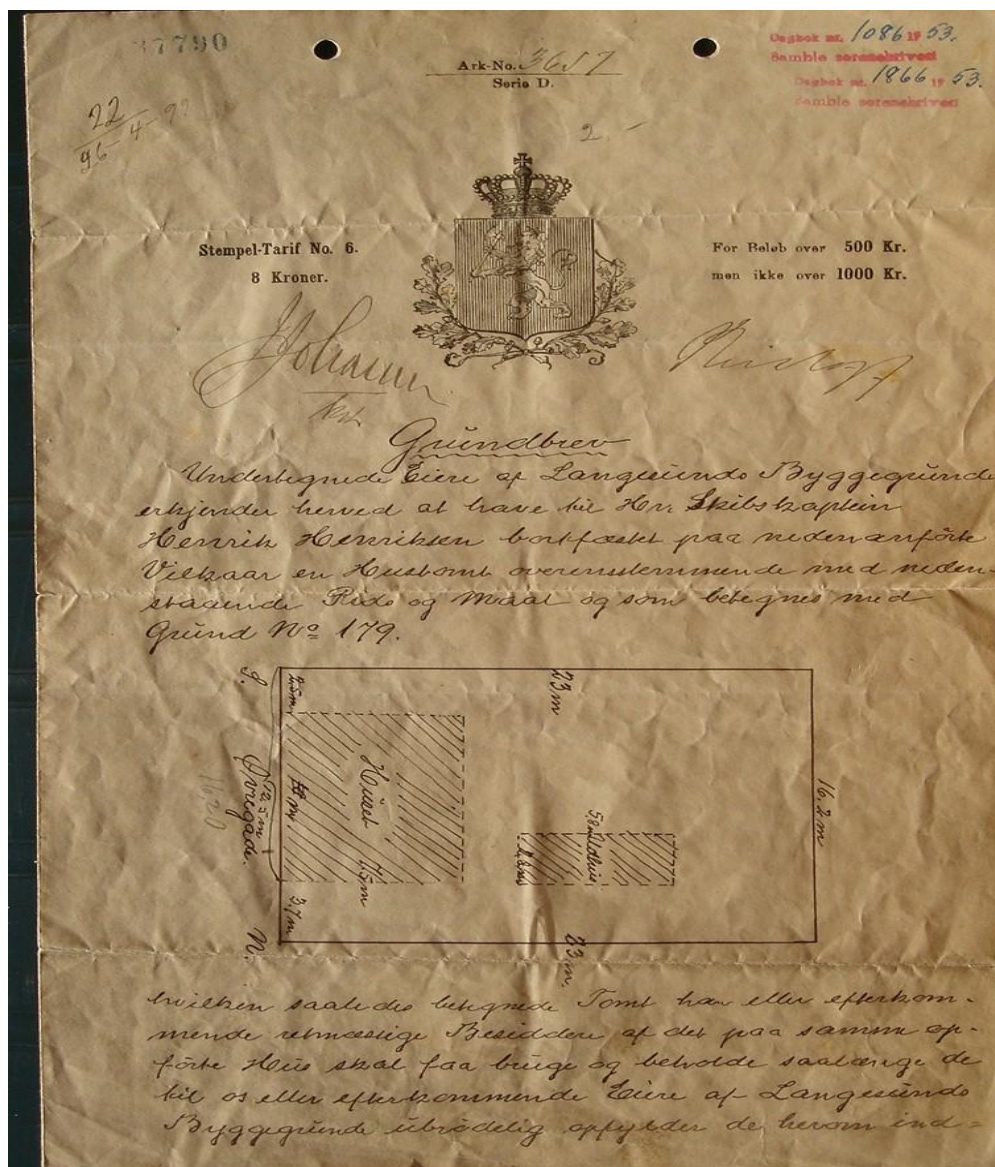 37790
Ark-No. 3657
Serie D.
Dagbok nr. 1086 19 53.
Bamble sorenskriveri
Dagbok nr. 1866 19 53.
Bamble sorenskriveri
22
2.-
Stempel-Tarif No. 6.
8 Kroner.
For Beløb over 500 Kr.
men ikke over 1000 Kr.
Grundbrev
Undertegnede Eiere af Langesunds Byggegrunde
erkjender herved at have til Hr. Skibskaptein
Henrik Henriksen bortfæstet paa nedenanførte
Vilkaar en Hustomt overensstemmende med neden-
staaende Rids og Maal og som betegnes med
Grund No 179.
S.
2.5 m
23 m
16.2 m
Huset
7.5 m
12.5 m
Øvregade.
1620
5.8 m
Ildhus
3.7 m
N.
23 m.
hvilken saaledes betegnede Tomt han eller efterkom-
mende retmæssige Besiddere af det paa samme op-
førte Hus skal faa bruge og beholde saalænge de
til os eller efterkommende Eiere af Langesunds
Byggegrunde ubrødelig opfylder de herom ind=